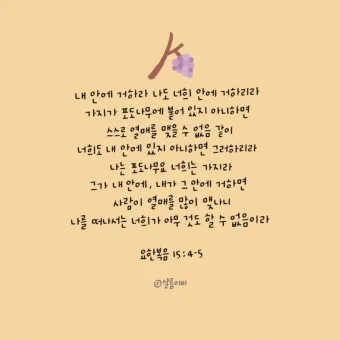 내 안에 거하라 나도 너희 안에 거하리라
가지가 포도나무에 붙어 있지 아니하면
스스로 열매를 맺을 수 없음 같이
너희도 내 안에 있지 아니하면 그러하리라
나는 포도나무요 너희는 가지라
그가 내 안에, 내가 그 안에 거하면
사람이 열매를 많이 맺나니
나를 떠나서는 너희가 아무 것도 할 수 없음이라
요한복음 15:4-5
©샬롬이비